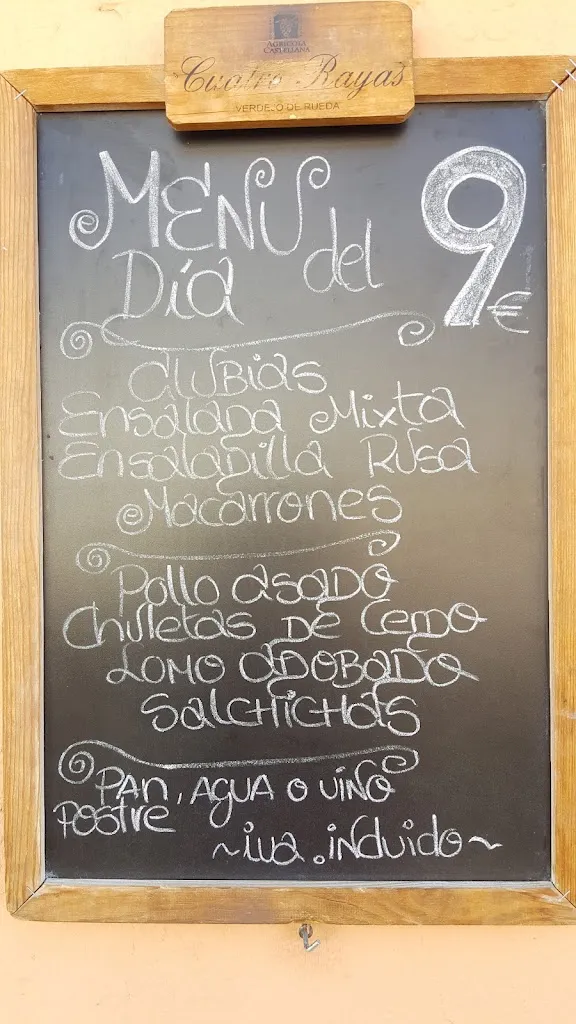 AGRÍCOLA
CASTELLANA
Cuatro Rayas
VERDEJO DE RUEDA
MENU del
Día
9€
Alubias
Ensalada Mixta
Ensaladilla Rusa
Macarrones
Pollo asado
Chuletas de Cerdo
Lomo adobado
Salchichas
Pan, agua o vino
Postre
~iva.incluido~